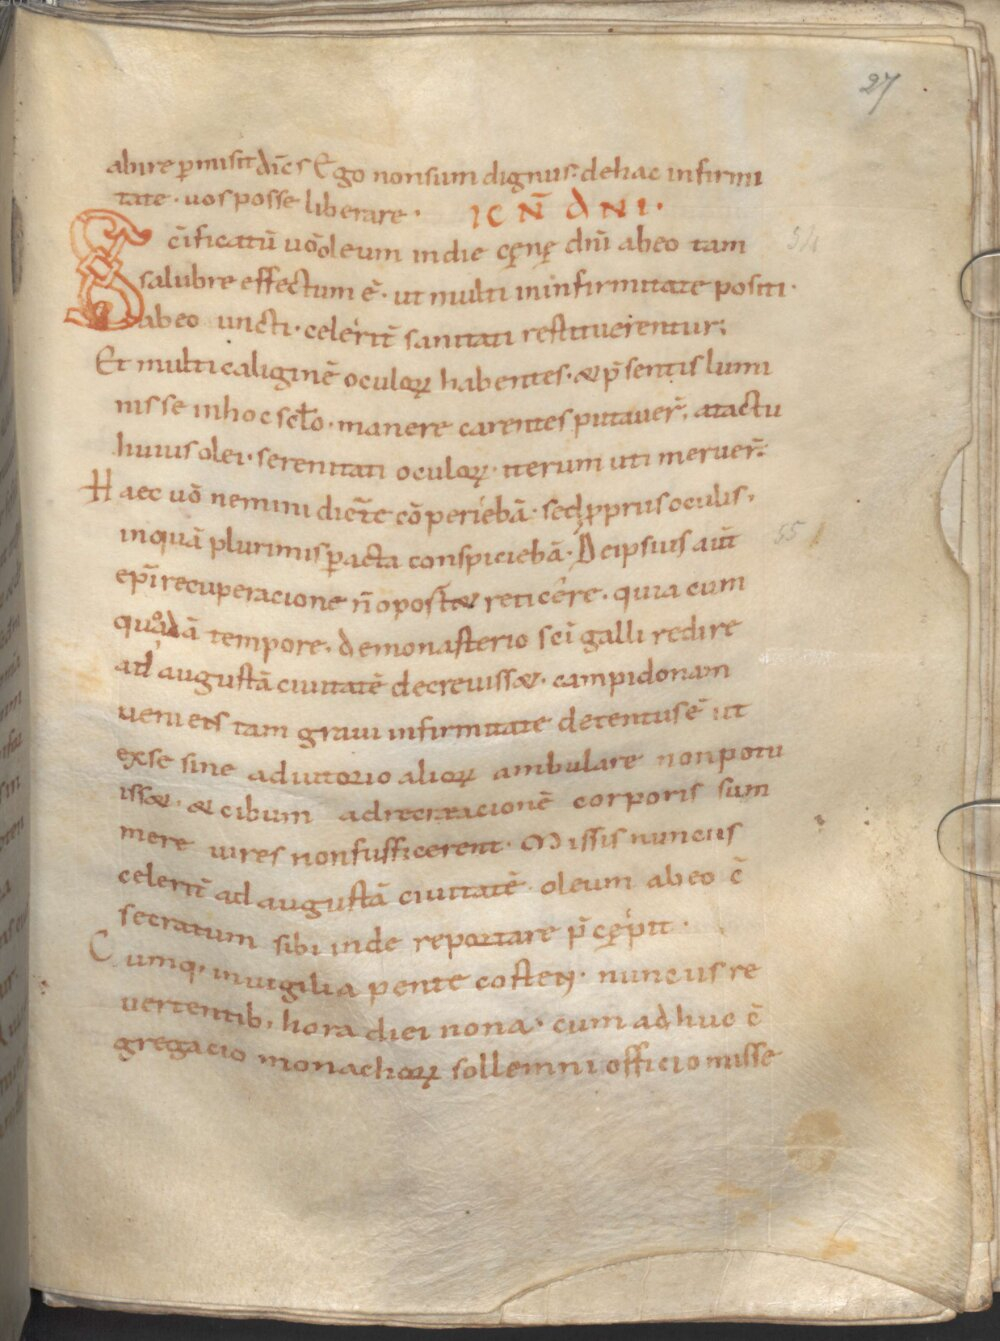 27
abire p̄misit dīcs Ego non sum dignus: de hac infirmi
tate · uos posse liberare · IC N̄ DNI ·
Sc̄ificatū uō oleum in die cęnę dnī ab eo tam 54
salubre effectum ē · ut multi in infirmitate positi ·
ab eo uncti · celerit̄ sanitati restituerentur;
Et multi caliginē oculoꝝ habentes · & p̄sentis lumi
nis se in hoc scło · manere carentes putauer̄ · a tactu
huius olei · serenitati oculoꝝ · iterum uti meruer̄:
Haec uō nemini dicere cōperiebā · sed ꝓpriis oculis ·
inquā plurimis ꝑacta conspiciebā · De ipsius aut̄ 55
epī recuperacione n̄ oport& reticere · quia cum
quodā tempore · de monasterio sc̄i galli redire
ad augustā ciuitatē decreuiss& · campidonam
ueniens tam graui infirmitate detentus ē ut
ex se sine adiutorio alioꝝ ambulare non potu
iss& · & cibum ad recreacionē corporis sum
mere uires non sufficerent · Missis nunciis
celerit̄ ad augustā ciuitatē · oleum ab eo c̄
secratum sibi inde reportare p̄cępit ·
Cumq; in uigilia pentecosten · nunciis re
uertentib; hora diei nona · cum adhuc c̄
gregacio monachoꝝ sollemni officio misse